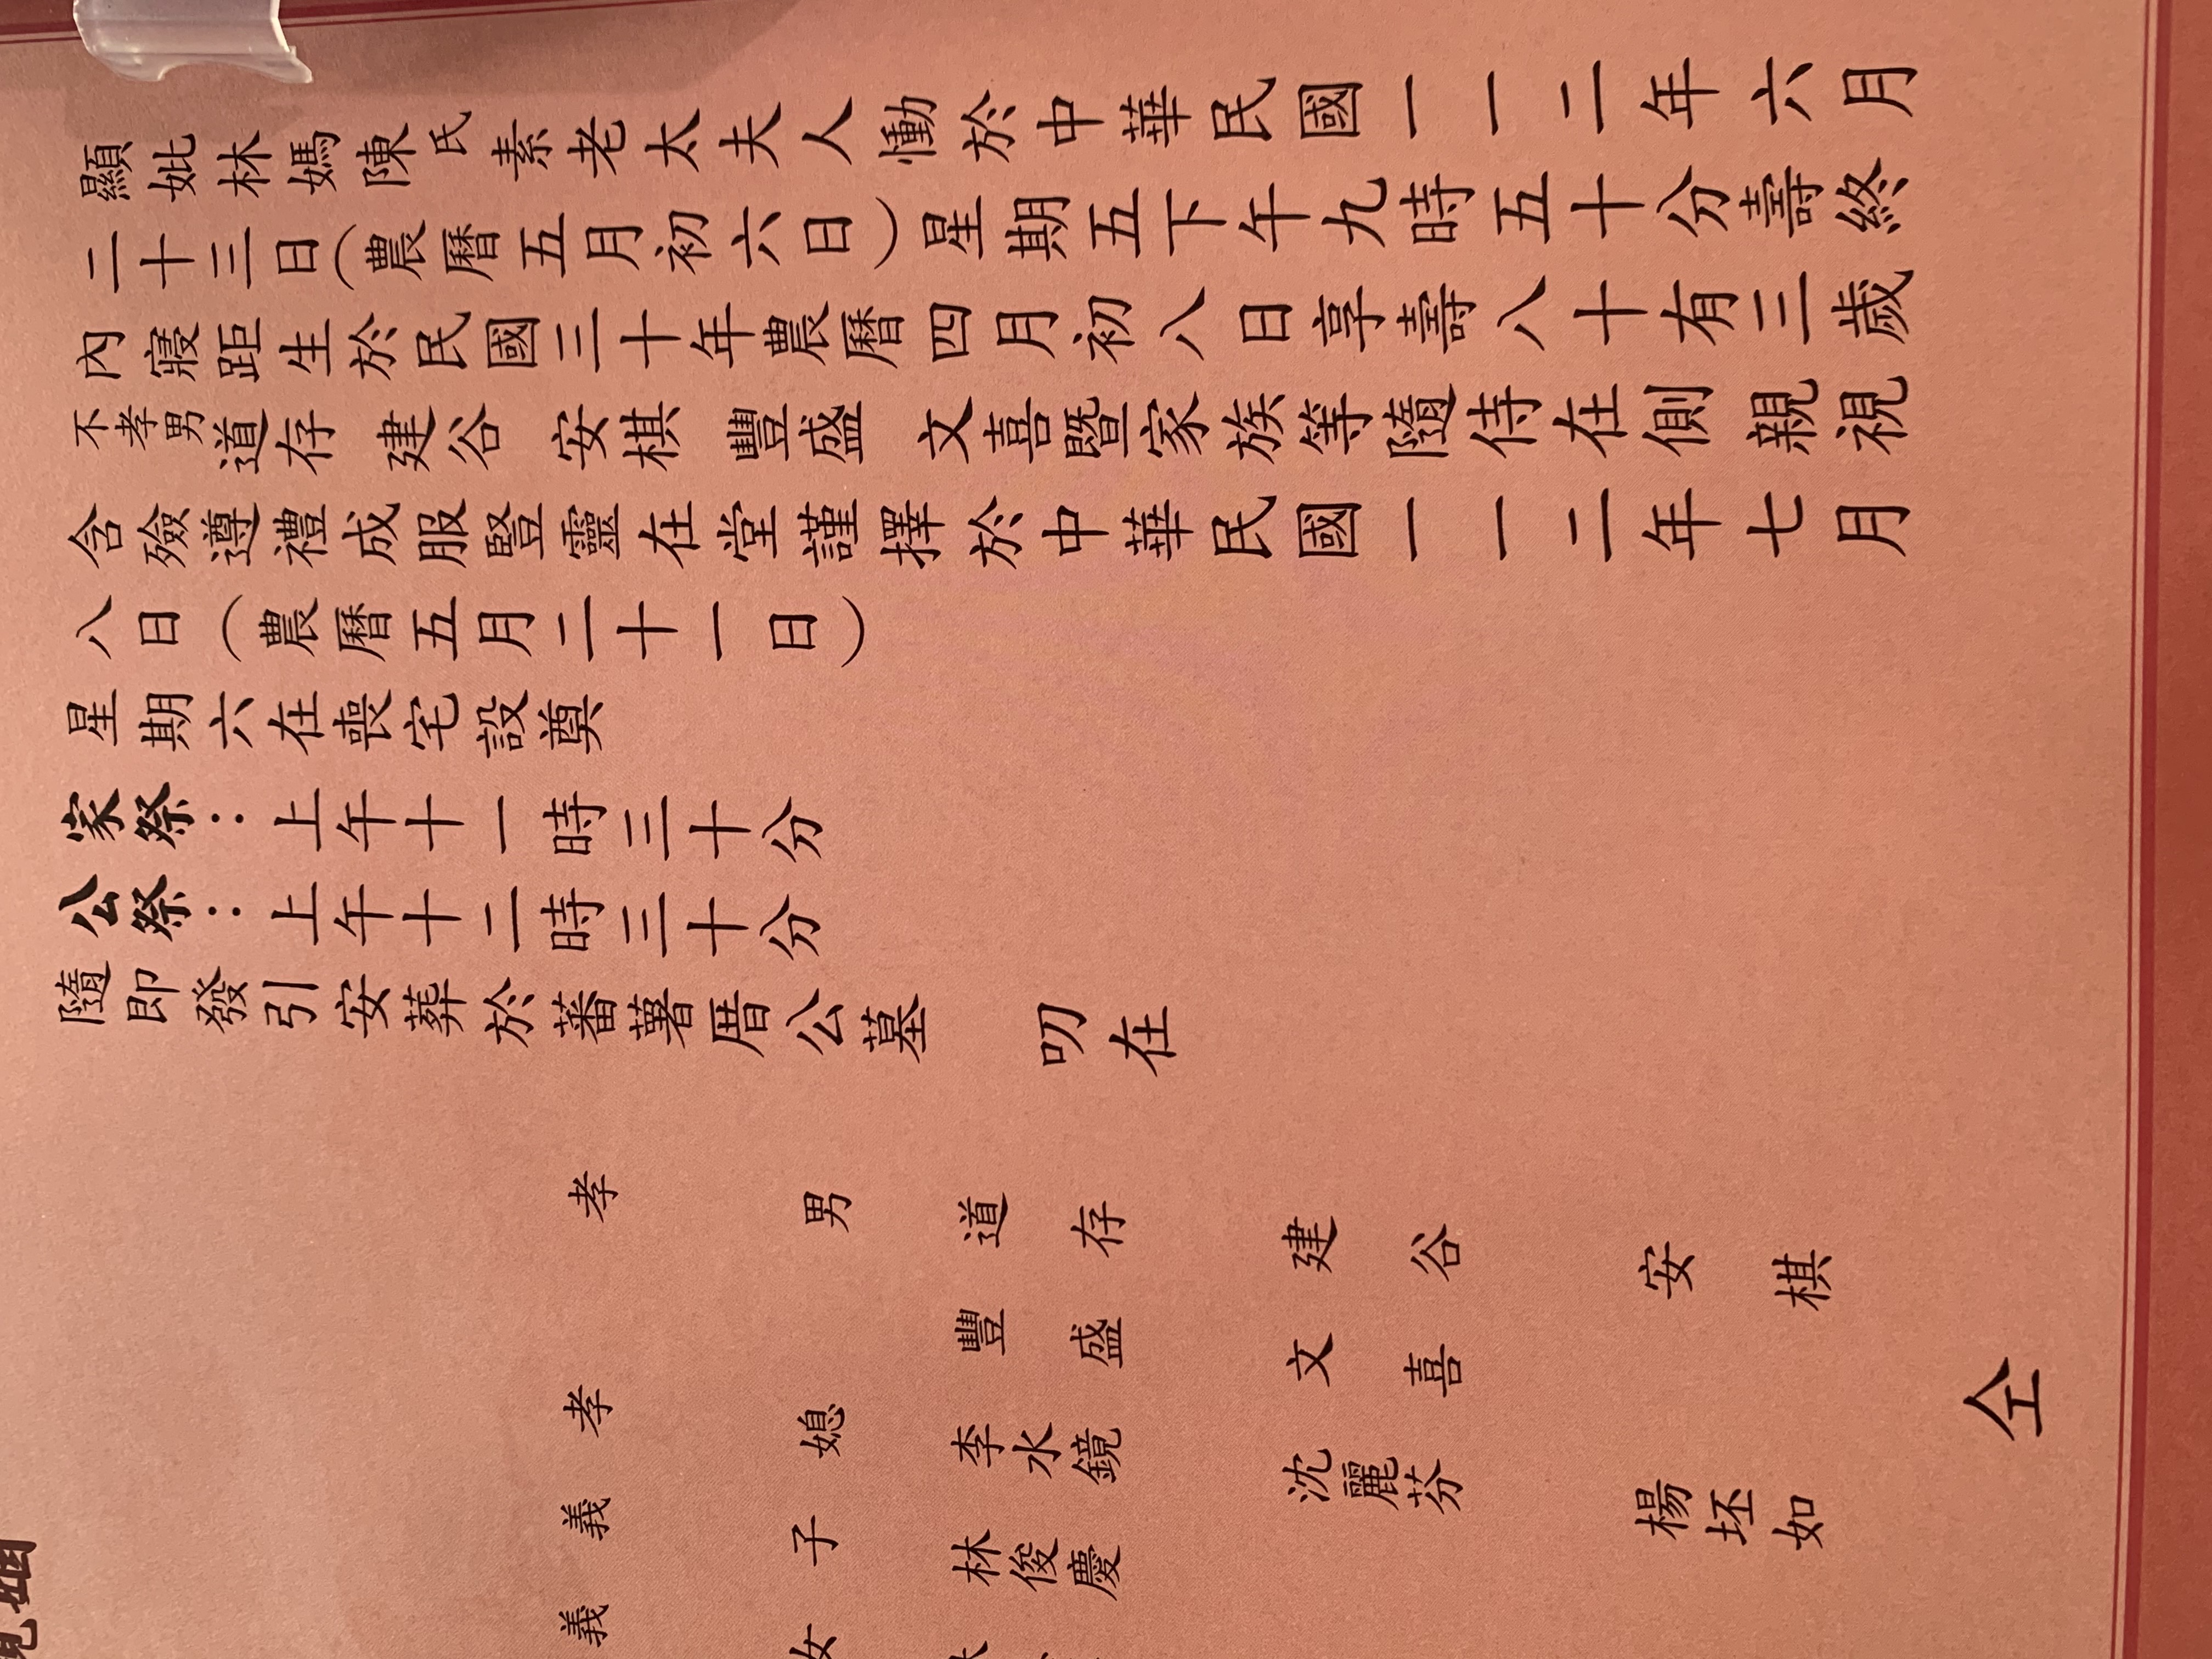 顯妣林媽陳氏素老太夫人慟於中華民國一一二年六月
二十三日(農曆五月初六日)星期五下午九時五十分壽終
內寢距生於民國三十年農曆四月初八日享壽八十有三歲
不孝男道存 建谷 安棋 豐盛 文喜暨家族等隨侍在側親視
含殮遵禮成服豎靈在堂謹擇於中華民國一一二年七月
八日(農曆五月二十一日)
星期六在喪宅設奠
家祭：上午十一時三十分
公祭：上午十二時三十分
隨即發引安葬於蕃薯厝公墓 叨在
孝男 道存 建谷 安棋
豐盛 文喜
孝媳 李水鏡 沈麗芬 楊坯如
仝
義子 林俊慶
義女